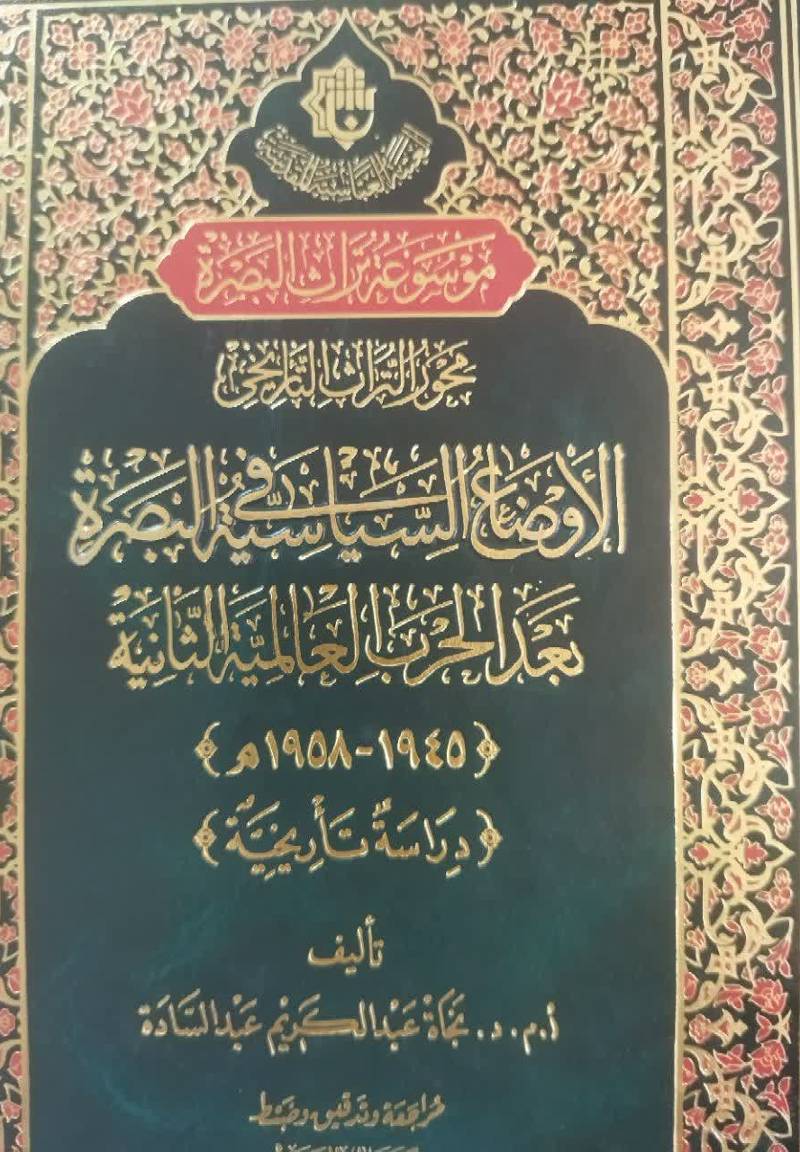 العتبة العباسية المقدسة
موسوعة تراث البصرة
محور التراث التاريخي
الأوضاع السياسية في البصرة
بعد الحرب العالمية الثانية
﴿١٩٤٥-١٩٥٨م﴾
﴿دراسةٌ تأريخيّةٌ﴾
تأليف
أ.م.د. نجاة عبد الكريم عبد السادة
مراجعة وتدقيق وضبط